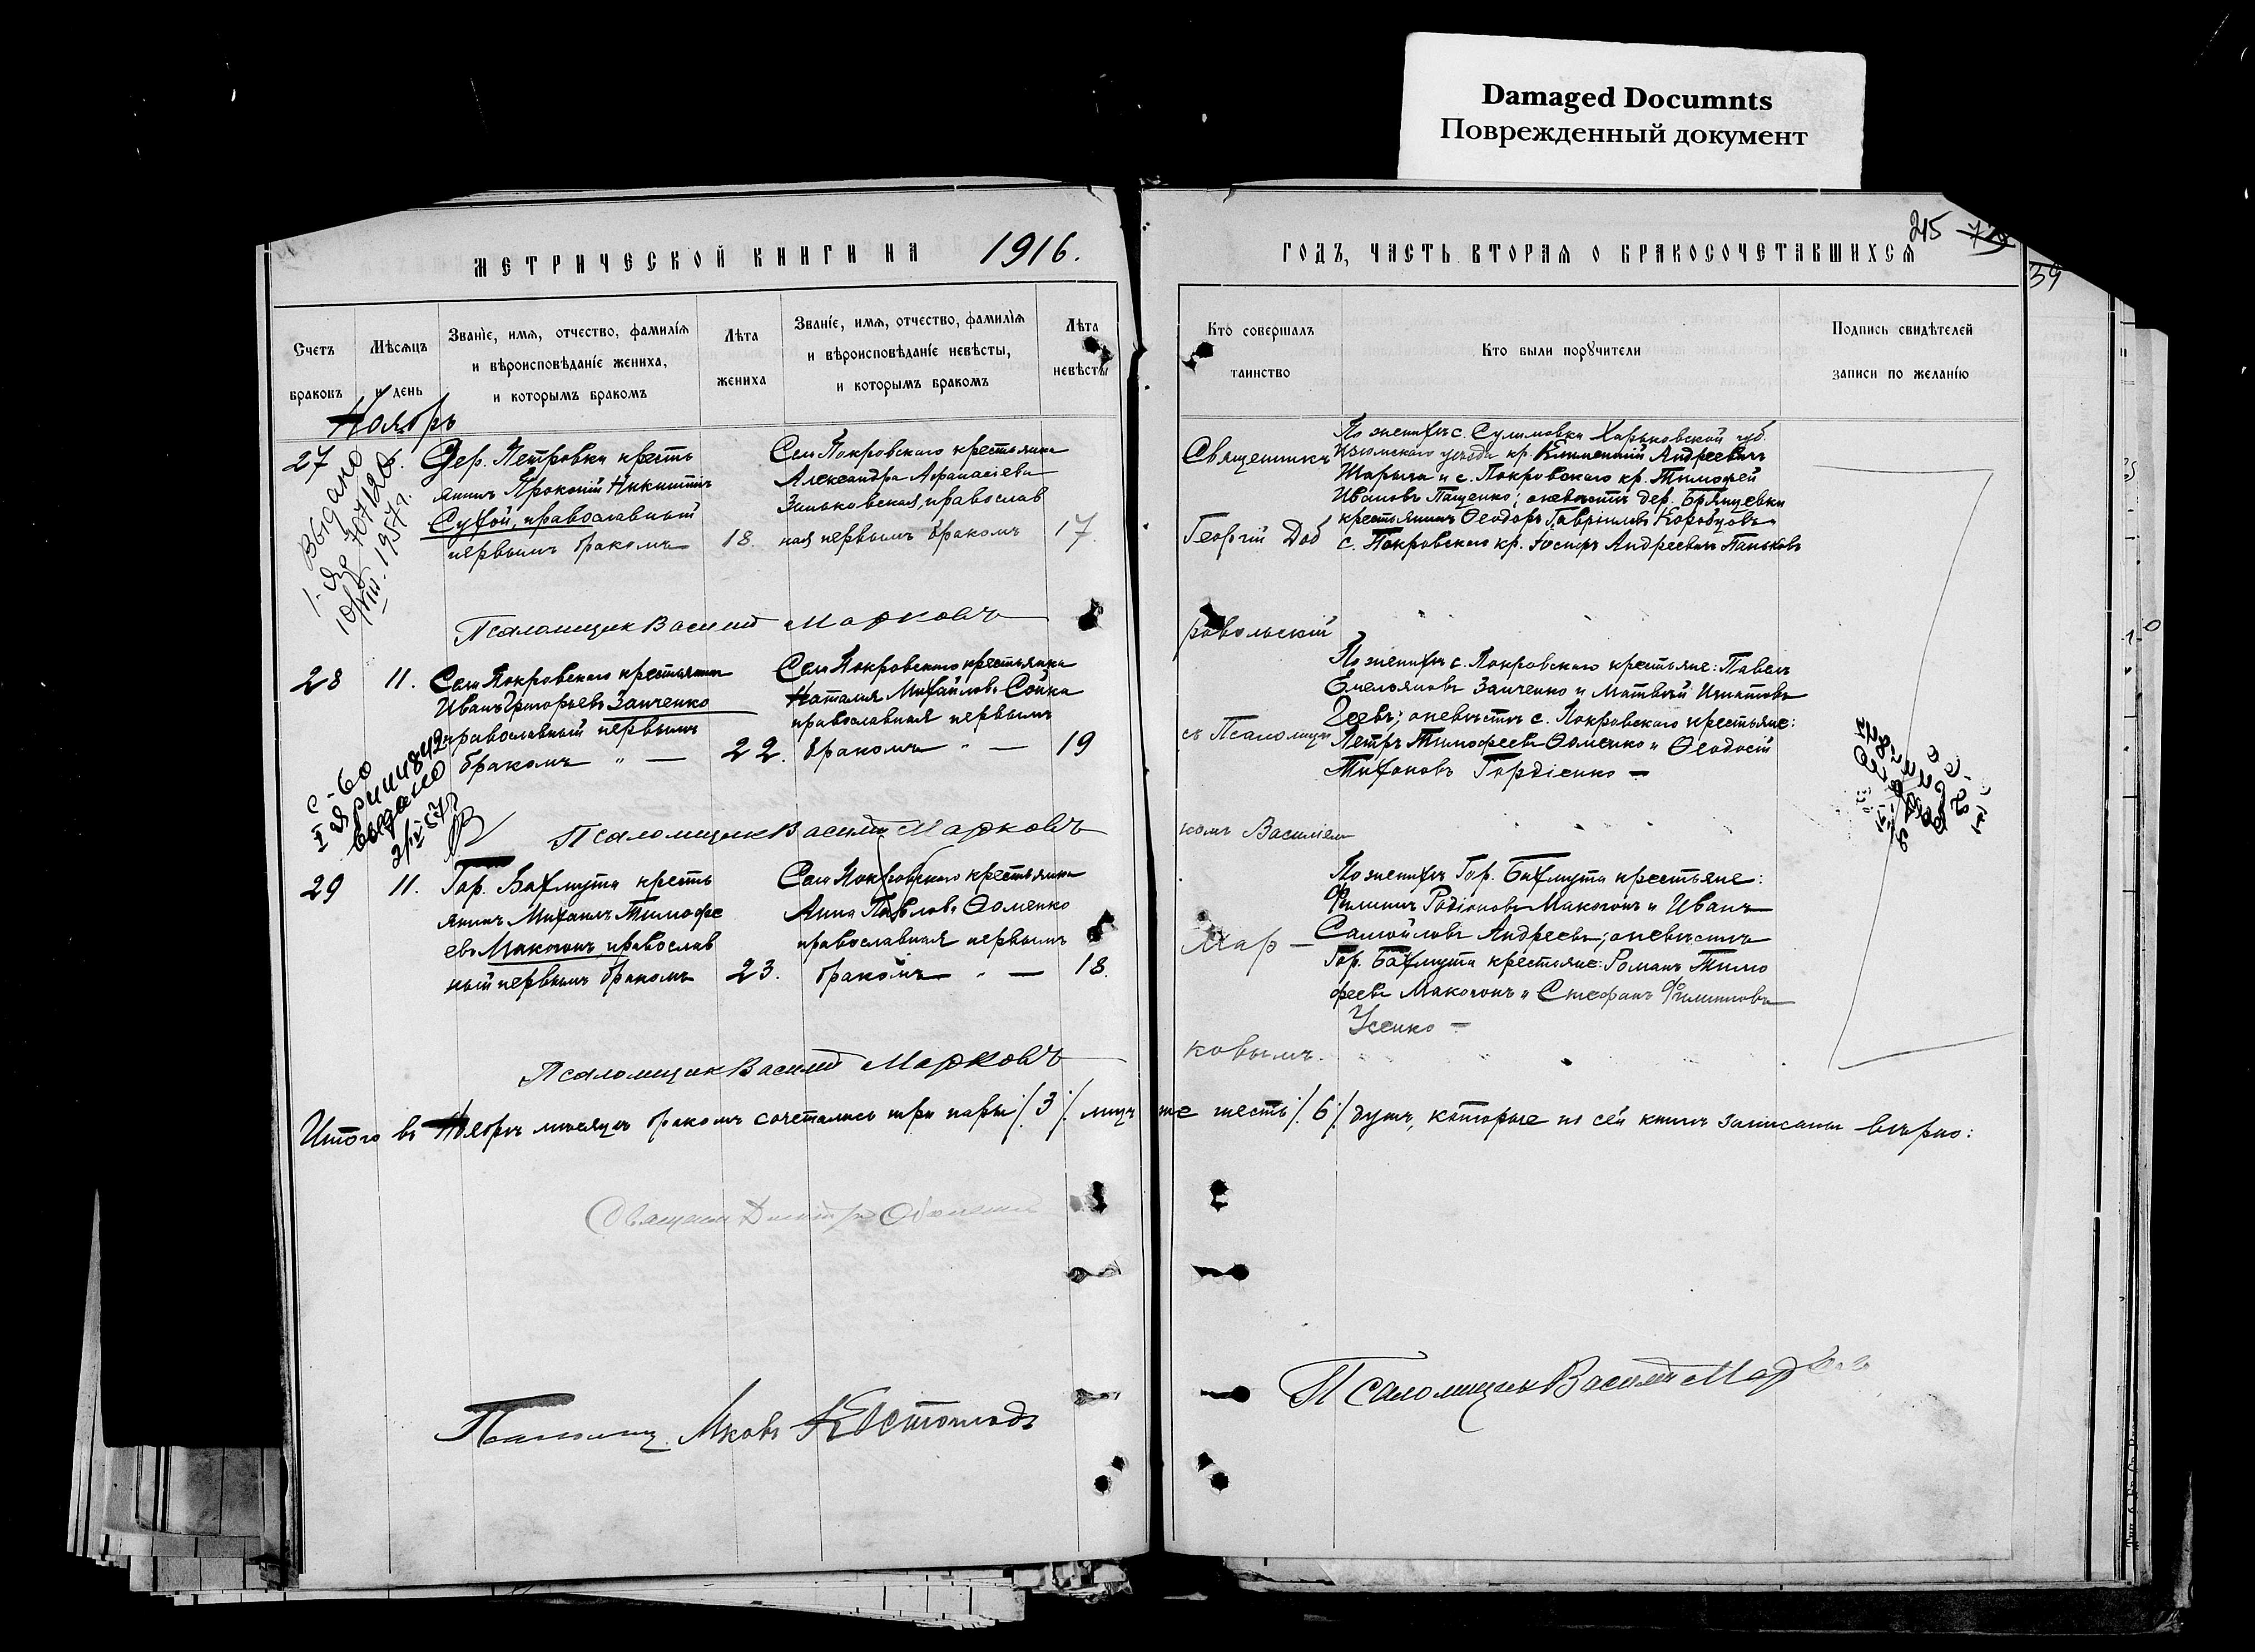 Damaged Documnts
Поврежденный документ
МЕТРИЧЕСКОЙ КНИГИ НА 1916.
ГОДЪ, ЧАСТЬ ВТОРАЯ О БРАКОСОЧЕТАВШИХСЯ
215
39
Счетъ браковъ
Мѣсяцъ и день
Званіе, имя, отчество, фамилія
и вѣроисповѣданіе жениха,
и которымъ бракомъ
Лѣта
жениха
Званіе, имя, отчество, фамилія
и вѣроисповѣданіе невѣсты,
и которымъ бракомъ
Лѣта
невѣсты
Кто совершалъ
таинство
Кто были поручители
Подпись свидѣтелей
записи по желанію
Ноябрь
27
Дер. Петровки кресть
янинъ Прокопій Никитинъ
Сухой, православный
первымъ бракомъ
18.
Села Покровскаго крестьянка
Александра Афанасіева
Зиньковская, православ
ная первымъ бракомъ
17.
Выдано
1957 г.
Священникъ
Георгій Доб
ровольскій
съ Псаломщи
комъ Василіем
Мар-
ковымъ.
По женихѣ с. Сулимовки Харьковской губ.
Изюмскаго уѣзда кр. Климентій Андреевичъ
Шарыга и с. Покровскаго кр. Тимофей
Ивановъ Пащенко; о невѣстѣ дер. Брянцевки
крестьянинъ Ѳеодоръ Гавріиловъ Коробцовъ и
с. Покровскаго кр. Іосифъ Андреевичъ Паньковъ
Псаломщик Василій Марковъ
28
11.
Села Покровскаго крестьянин
Иванъ Григорьевъ Заиченко
православный первымъ
бракомъ " —
22.
Села Покровскаго крестьянка
Наталия Михайлова Сойка
православная первымъ
бракомъ " —
19
По женихѣ с. Покровскаго крестьяне: Павелъ
Емельяновъ Заиченко и Матвѣй Игнатовъ
Геевъ; о невѣстѣ с. Покровскаго крестьяне:
Петръ Тимофеевъ Ѳоменко и Ѳеодосій
Тихоновъ Гордіенко —
выдано
Псаломщик Василій Марковъ
29
11.
Гор. Бахмута кресть
янинъ Михаилъ Тимофе
евъ Макогонъ, православ
ный первымъ бракомъ
23.
Села Покровскаго крестьянка
Анна Павлова Ѳоменко
православная первымъ
бракомъ " —
18.
По женихѣ Гор. Бахмута крестьяне:
Филиппъ Родіоновъ Макогонъ и Иванъ
Самойловъ Андреевъ; о невѣстѣ
Гор. Бахмута крестьяне: Романъ Тимо
феевъ Макогонъ и Стефанъ Филипповъ
Усенко —
Псаломщик Василій Марковъ
Итого въ Ноябрѣ мѣсяцѣ бракомъ сочеталось три пары /3/ лицъ же шесть /6/ душъ, которые по сей книгѣ записаны вѣрно:
Псаломщ. Яковъ
Псаломщикъ Василій Марковъ